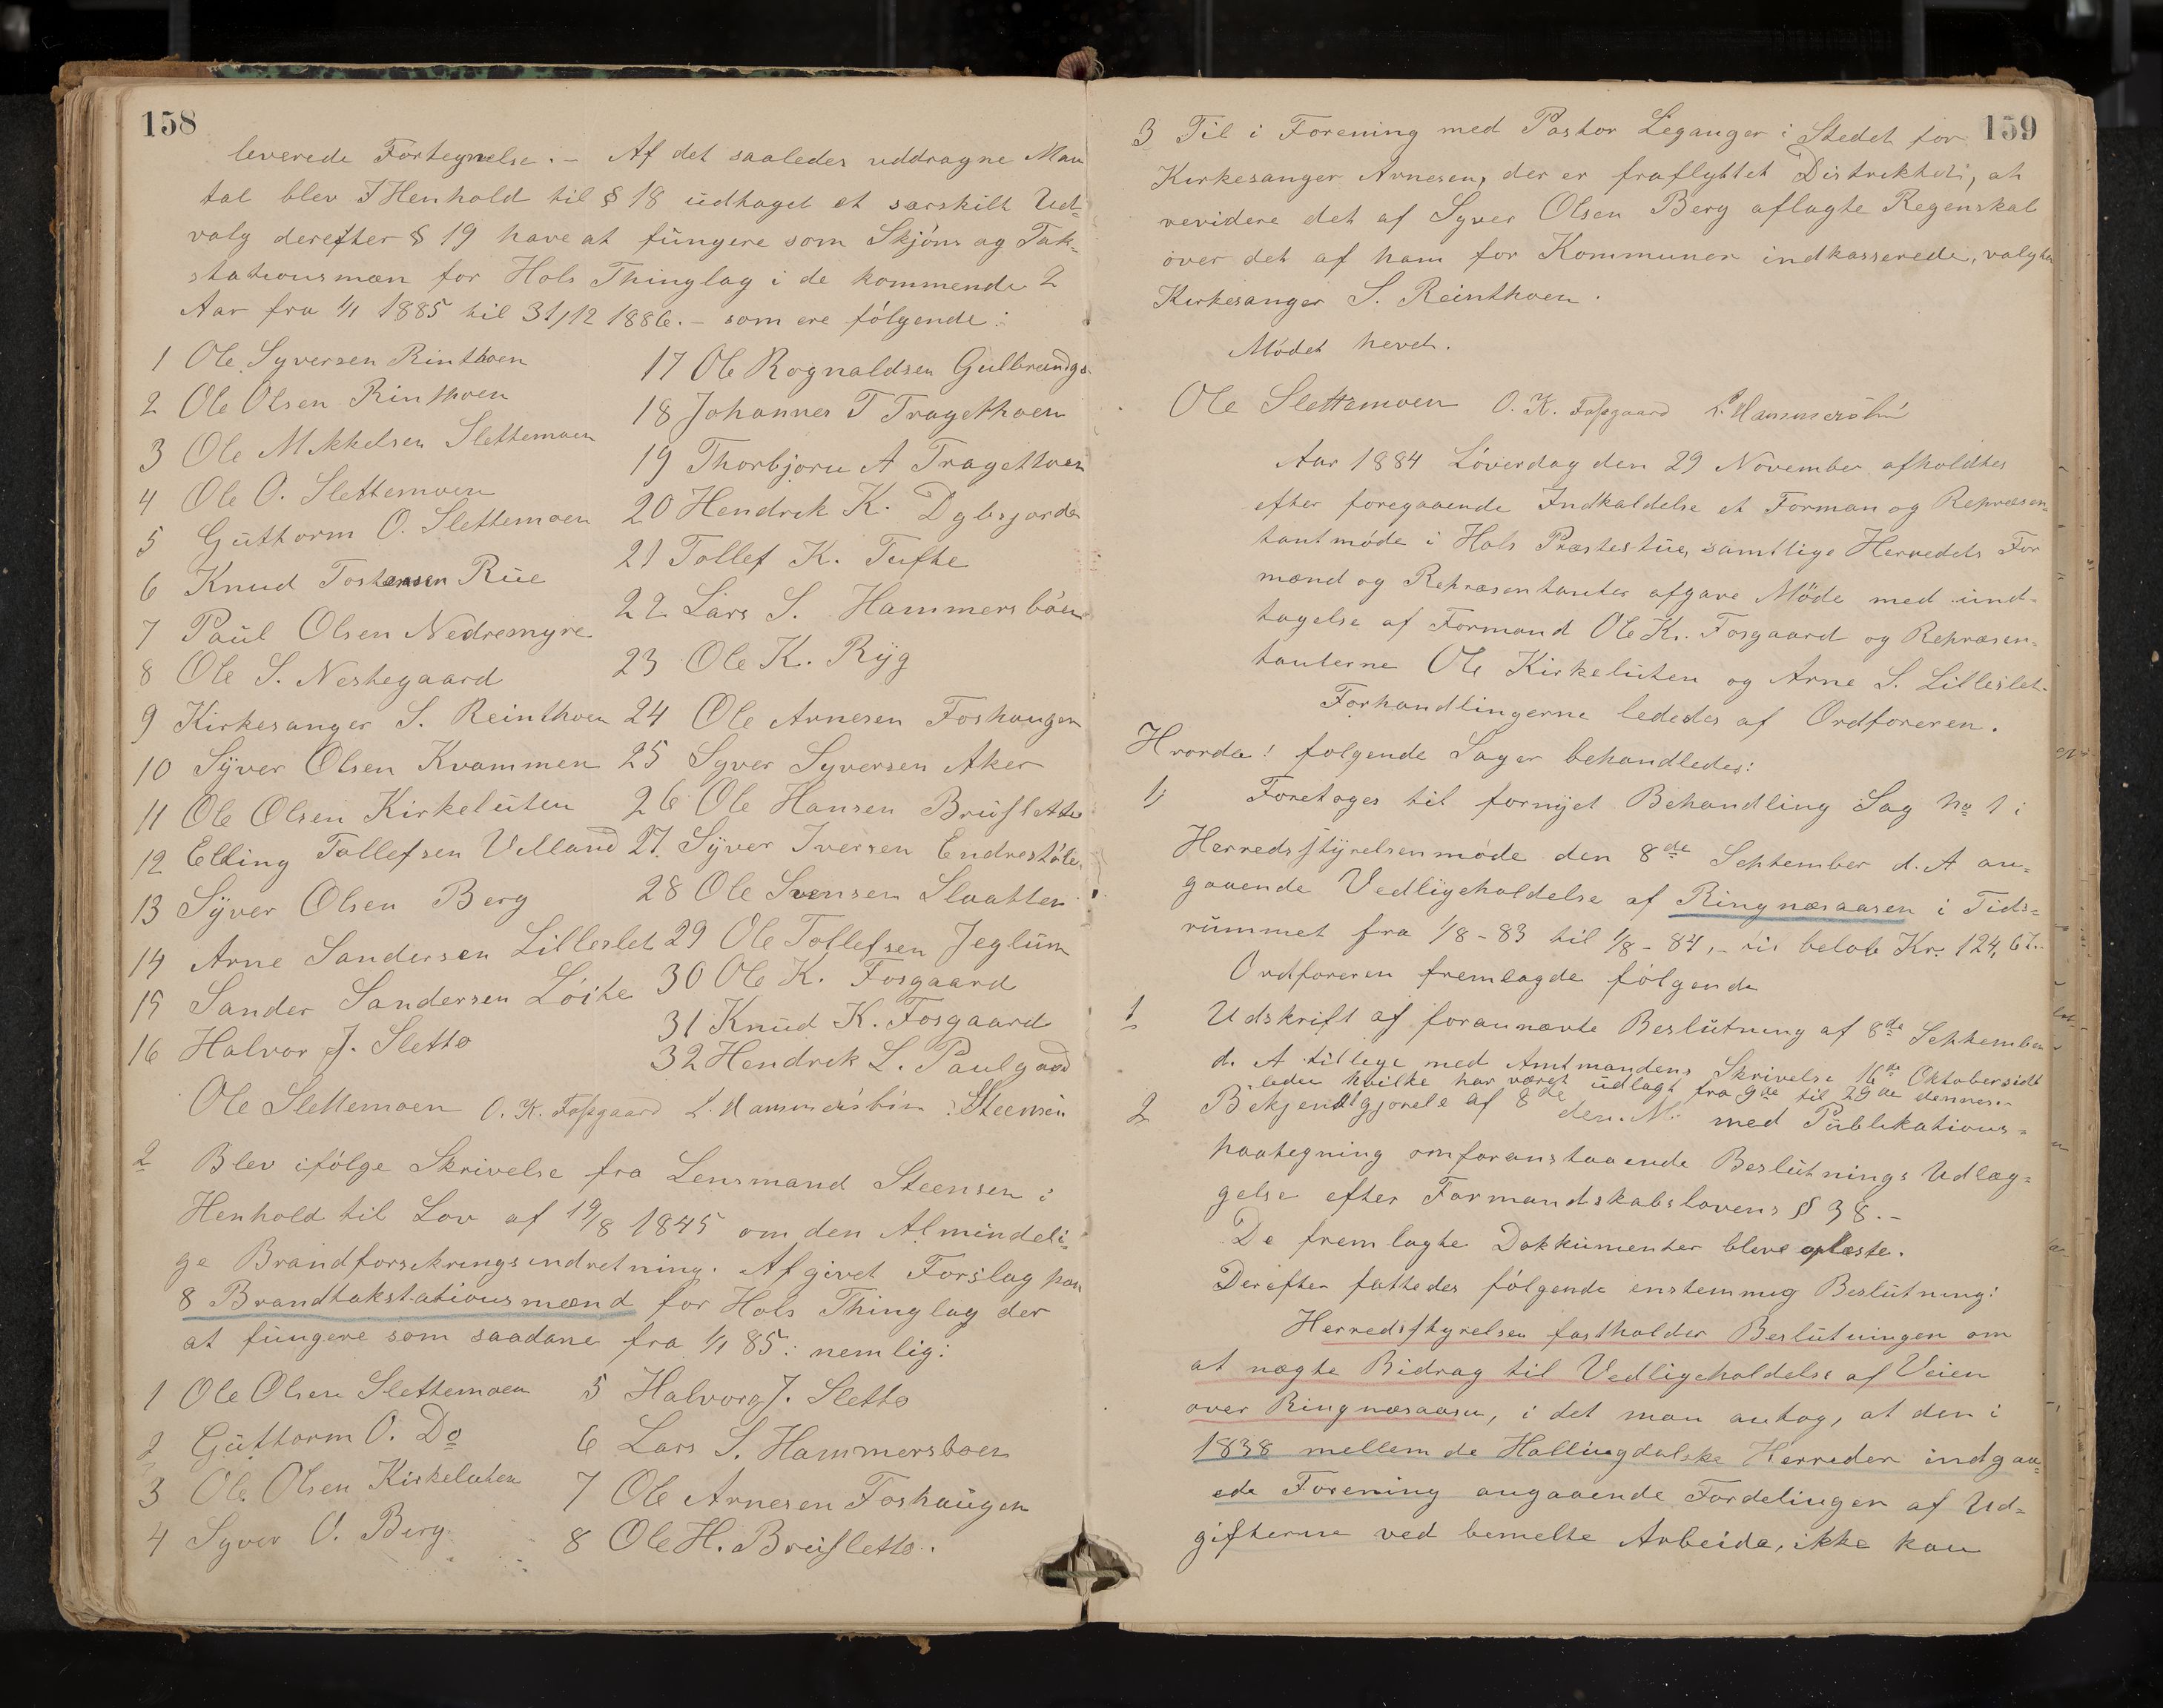 158
leverede Fortegnelse. – Af det saaledes uddragne Man
tal blev I Henhold til § 18 üdtaget et særskilt Ud-
valg derefter § 19 have at füngere som Skjöns og Tak-
stationsmæn for Hols Thinglag i de kommende 2
Aar fra 1/1 1885 til 31/12 1886. – som ere fölgende:
1 Ole Syversen Rinthoen
2 Ole Olsen Rinthoen
3 Ole Mikkelsen Slettemoen
4 Ole O. Slettemoen
5 Güttorm O. Slettemoen
6 Knud Tostensen Rüe
7 Paul Olsen Nedremyre
8 Ole S. Nestegaard
9 Kirkesanger S. Reinthoen
10 Syver Olsen Kvammen
11 Ole Olsen Kirkelüten
12 Elling Tollefsen Villand
13 Syver Olsen Berg
14 Arne Sandersen Lilleslet
15 Sander Sandersen Löite
16 Halvor J. Sletto
17 Ole Rognaldsen Gulbrandsg.
18 Johannes T Tragethoen
19 Thorbjorn A Tragethoen
20 Hendrik K. Dglesjorde
21 Tollef K. Tufte
22 Lars S. Hammersböen
23 Ole K. Ryg
24 Ole Arnesen Foshaugen
25 Syver Syversen Aker
26 Ole Hansen Brüsletto
27. Syver Iversen Endrestölen
28 Ole Svensen Slaatten
29 Ole Tollefsen Jeglüm
30 Ole K. Fosgaard
31 Knüd K. Fosgaard
32 Hendrik L. Paulgaard
Ole Slettemoen O. K. Fosgaard L. Hammersbön Steensen
2 Blev ifölge Skrivelse fra Lensmand Steensen i
Henhold til Lov af 19/8 1845 om den Almindeli-
ge Brandforsikringsindretning. Afgivet Forslag paa
8 Brandtakstationsmænd for Hols Thinglag der
at füngere som saadane fra 1/1 85: nemlig:
1 Ole Olsen Slettemoen
2 Güttorm O. Do
3 Ole Olsen Kirkeluten
4 Syver O. Berg.
5 Halvor J. Sletto
6 Lars S. Hammersboen
7 Ole Arnesen Foshaügen
8 Ole H. Brüsletto.
159
3 Til i Forening med Pastor Leganger i Stedet for
Kirkesanger Arnesen, der er fraflyttet Distriktet, at
revidere det af Syver Olsen Berg aflagte Regenskab
over det af ham for Kommunen indkasserede, valgtes
Kirkesanger S. Reinthoen.
Mödet hevet.
Ole Slettemoen O. K. Fosgaard L. Hammersbön
Aar 1884 Löverdag den 29 November afholdtes
efter foregaaende Indkaldelse et Forman og Repræsen-
tantmöde i Hols Præstestüe, samtlige Herredets For
mænd og Repræsentanter afgave Möde med ünd-
tagelse af Formand Ole K. Fosgaard og Repræsen-
tanterne Ole Kirkelüten og Arne S. Lilleslet.
Forhandlingerne lededes af Ordforeren.
Hvorda! folgende Sager behandledes:
1) Foretoges til fornyet Behandling Sag No 1 i
Herredsstyrelsenmöde den 8de September d. A an-
gaaende Vedligeholdelse af Ringnæsaasen i Tids-
rümmet fra 1/8 - 83 til 1/8 - 84, belöb Kr. 124,67.
Ordforeren fremlagde fölgende
1 Udskrift af forannævte Beslütning af 8de September
d. A tillige med Amtmandens Skrivelse 16de Oktober sidt
leder hvilke har været üdlagt fra 9de til 29de dennes.
2 Bekjendtgjorele af 8de den. M. med Püblikations-
paategning om foranstaaende Beslütnings Udlæg-
gelse efter Formandskabslovens § 38. –
De fremlagte Dokkümenter bleve oplæste.
Derefter fattedes fölgende enstemmig Beslütning:
Herredsstyrelsen fastholder Beslütningen om
at nægte Bidrag til Vedligeholdelse af Veien
over Ringnæsaasen, i det man antog, at den i
1838 mellem de Hallingdalske Herreder indgaa-
ede Forening angaaende Fordelingen af Ud-
gifterne ved bemelte Arbeide, ikke kan